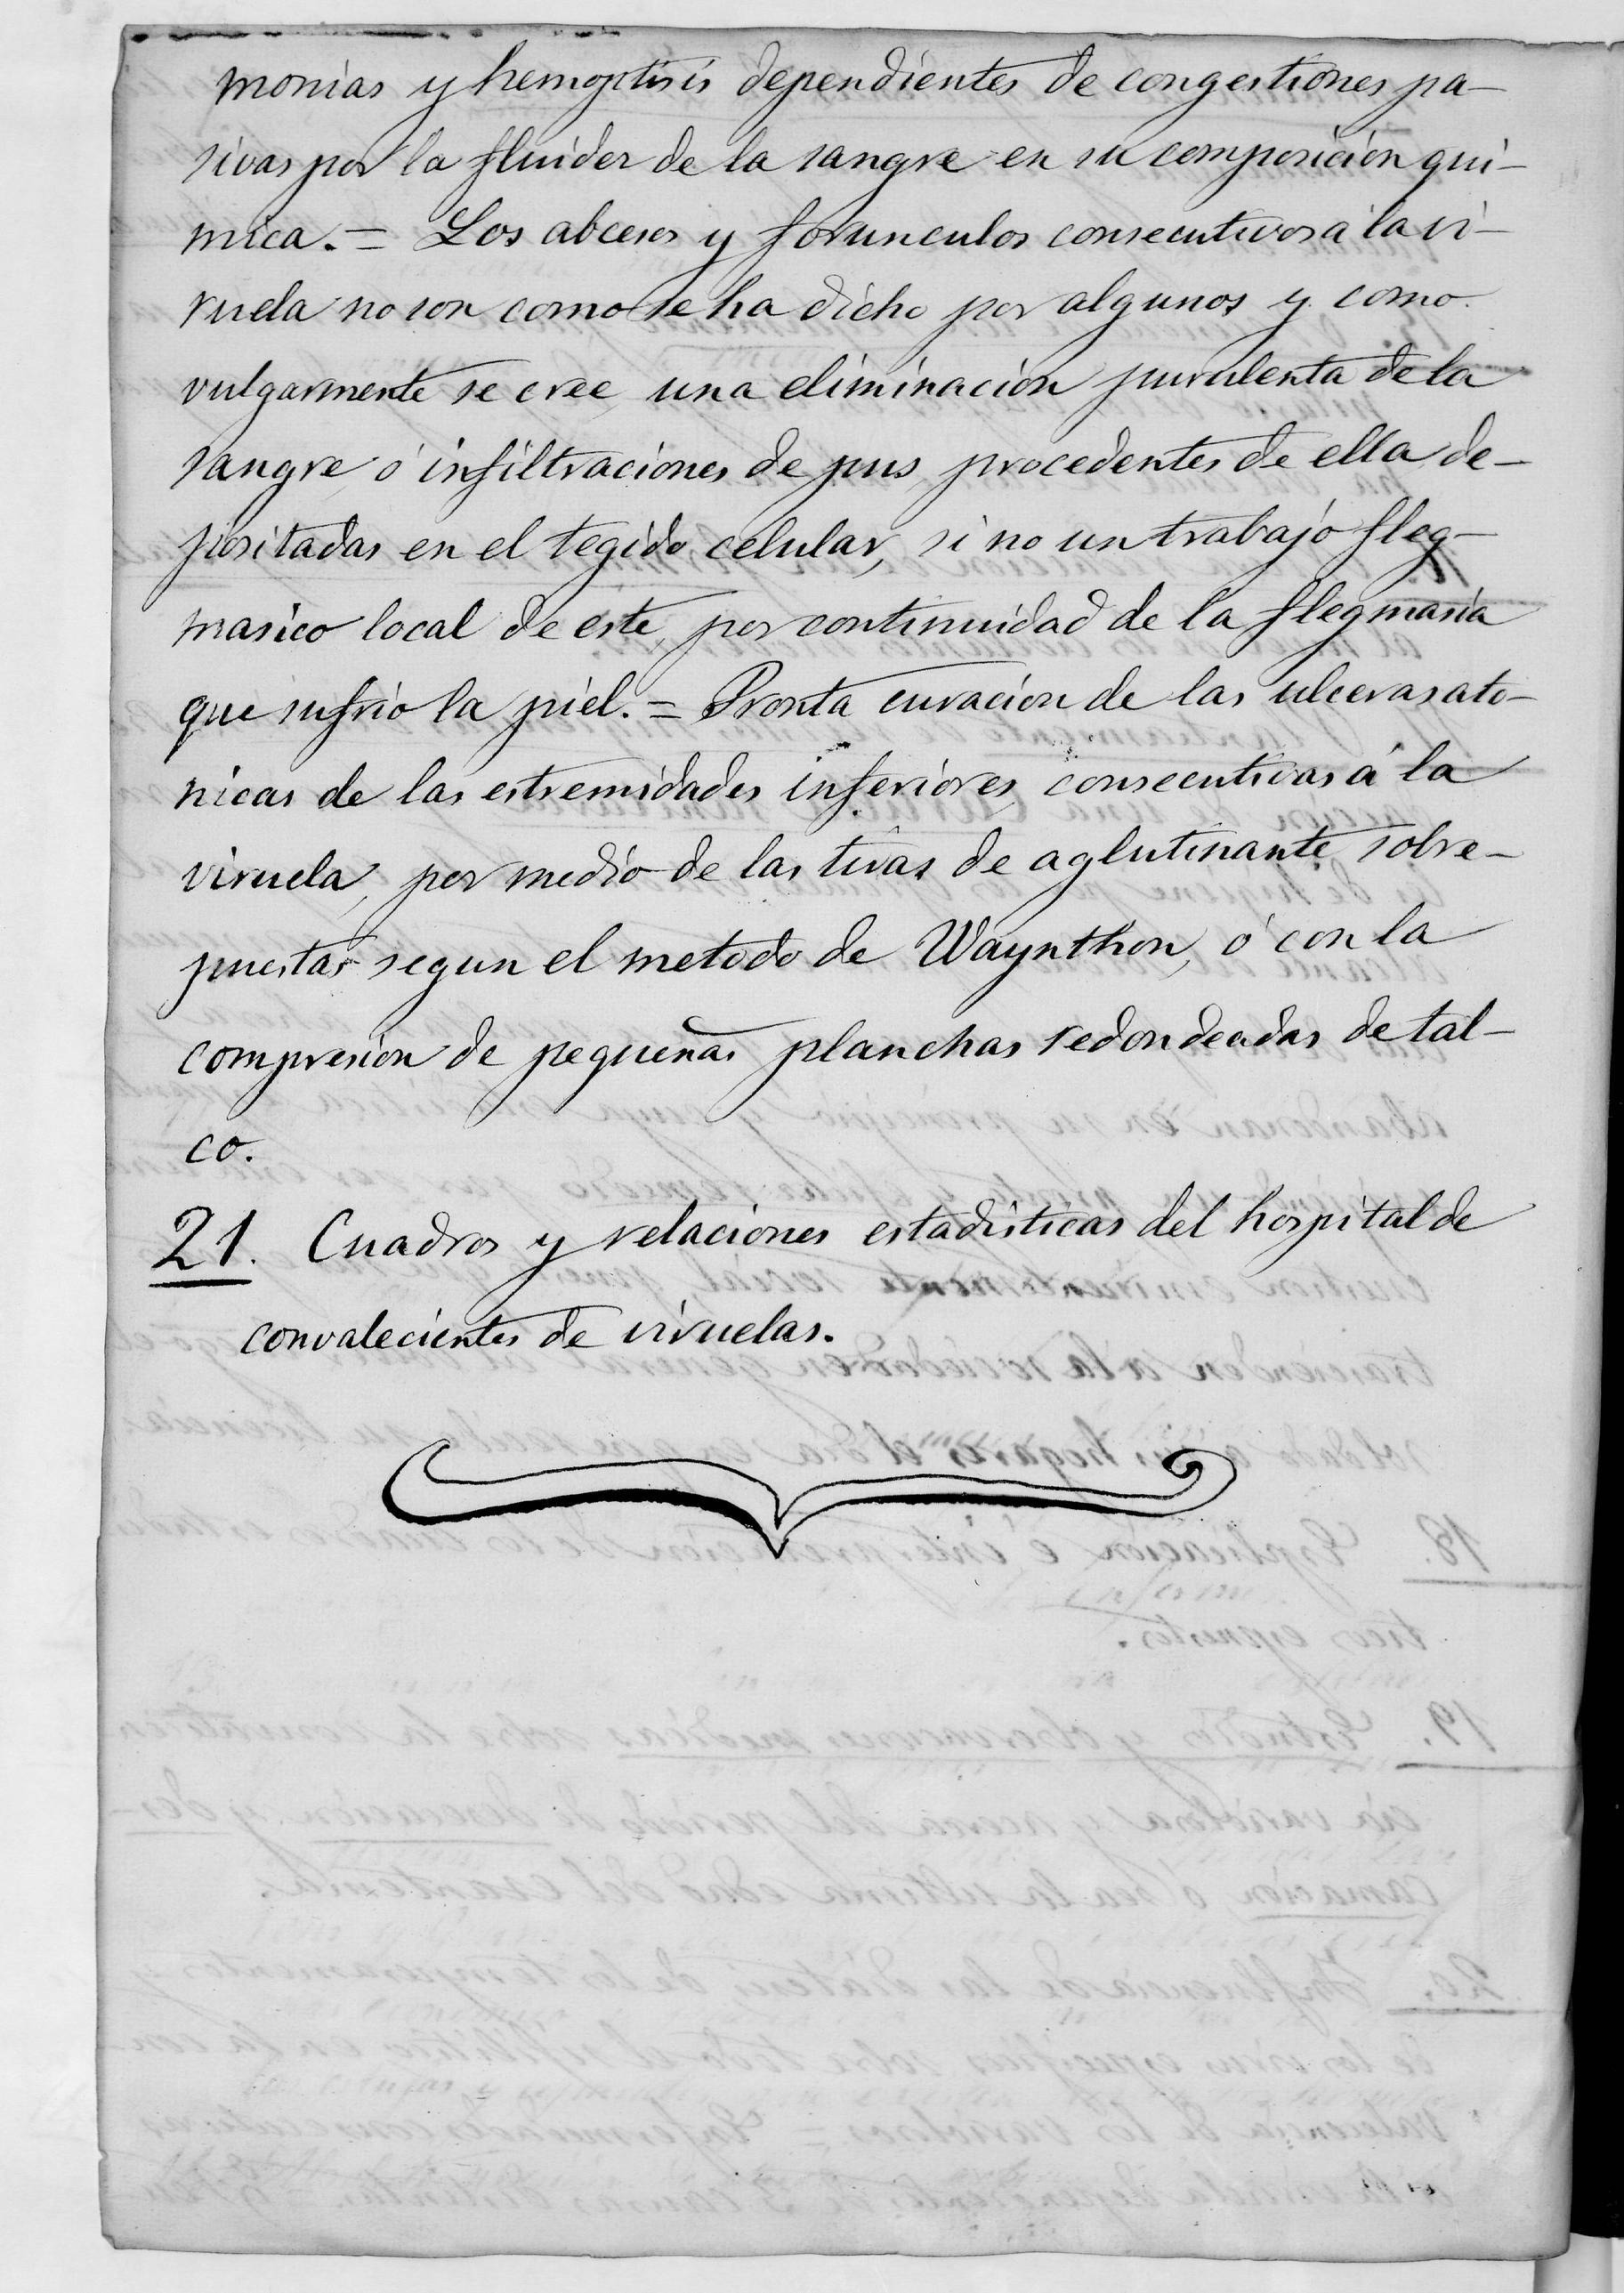 monias y hemoptisis dependientes de congestiones pa-
sivas por la fluidez de la sangre en su composicion qui-
mica. = Los abcesos y forunculos consecutivos á la vi-
ruela no son como se ha dicho por algunos y como
vulgarmente se cree, una eliminacion purulenta de la
sangre, ó infiltraciones de pus, procedentes de ella, de-
positadas en el tegido celular, si no un trabajo fleg-
masico local de este, por continuidad de la flegmasia
que sufrio la piel. = Pronta curacion de las ulceras ato-
nicas de las estremidades inferiores, consecutivas á la
viruela, por medio de las tiras de aglutinante sobre-
puestas segun el metodo de Waynthon, ó con la
compresion de pequeñas planchas redondeadas de tal-
co.
21. Cuadros y relaciones estadisticas del hospital de
convalecientes de viruelas.